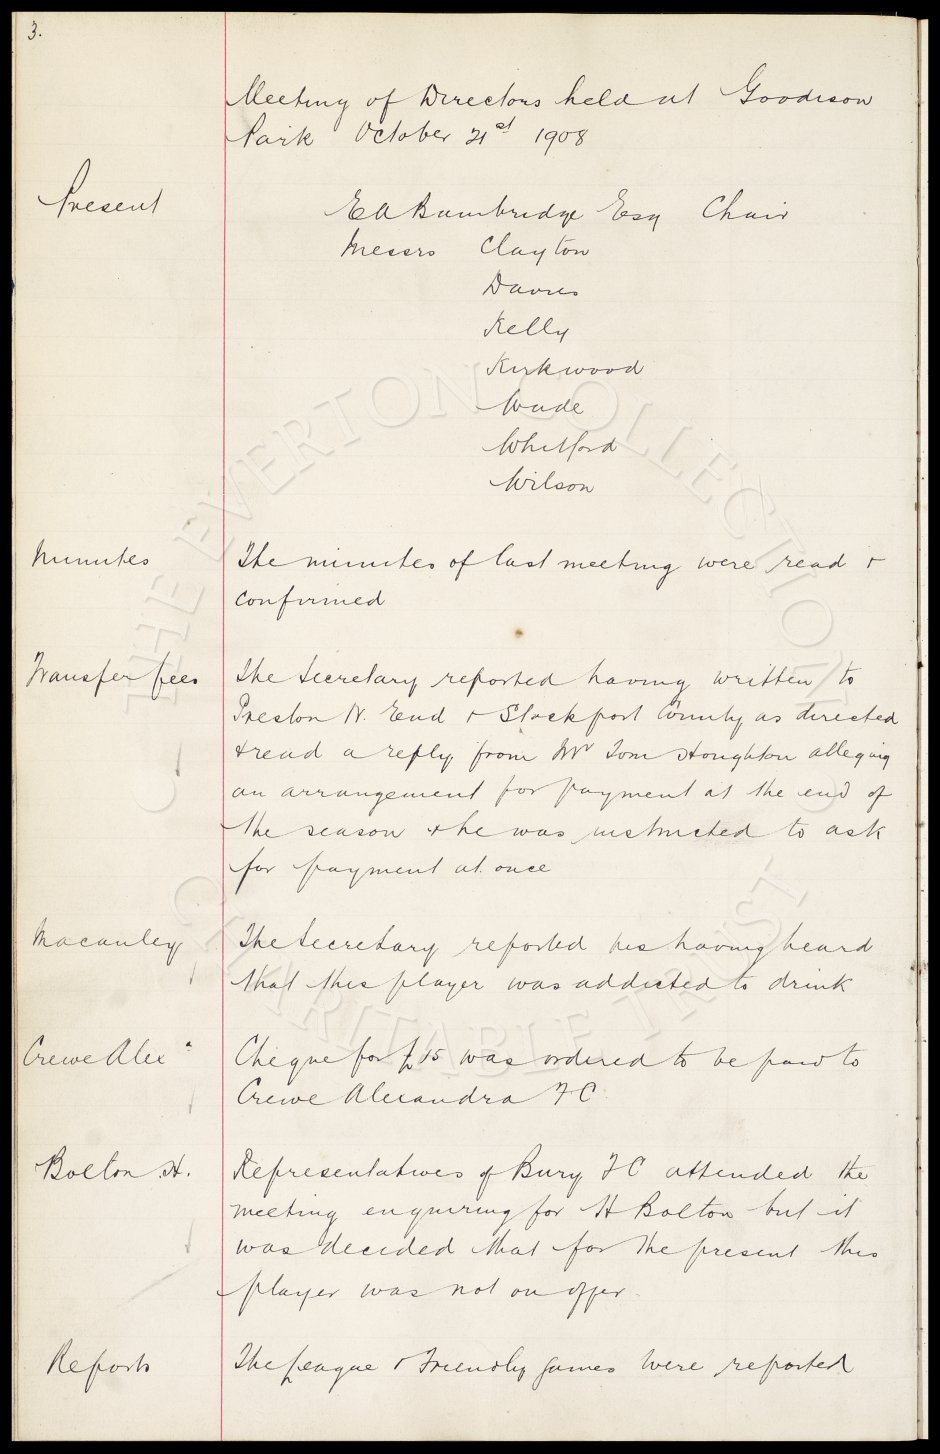 3.
Meeting of Directors held at Goodison
Park October 21st 1908
Present
E A Bainbridge Esq Chair
Messrs Clayton
Davies
Kelly
Kirkwood
Wade
Whitford
Wilson
Minutes
The minutes of last meeting were read +
confirmed
Transfer fees
The Secretary reported having written to
Preston N. End + Stockport County as directed
+ read a reply from Mr Tom Houghton alleging
an arrangement for payment at the end of
the season + he was instructed to ask
for payment at once
Macauley
The Secretary reported his having heard
that this player was addicted to drink
Crewe Alexa
Cheque for £15 was ordered to be paid to
Crewe Alexandra F C.
Bolton H.
Representatives of Bury F C attended the
meeting enquiring for H Bolton but it
was decided that for the present this
player was not on offer.
Reports
The League + Friendly games were reported
THE EVERTON COLLECTION
CHARITABLE TRUST